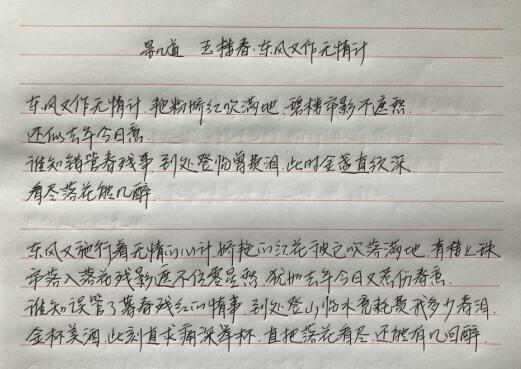 晏几道 玉楼春·东风又作无情计
东风又作无情计,艳粉娇红吹满地.碧楼帘影不遮愁.
还似去年今日意.
谁知错管春残事.到处登临曾费泪.此时金盏直须深.
看尽落花能几醉.
东风又施行着无情的心计.娇艳的红花被它吹落满地.青楼上珠
帘落入落花残影遮不住零星愁.犹如去年今日又惹伤春意.
谁知误管了暮春残红的情事.到处登山临水竟耗费我多少春泪.
金杯美酒.此刻直求痛深举杯.直把落花看尽.还能有几回醉.